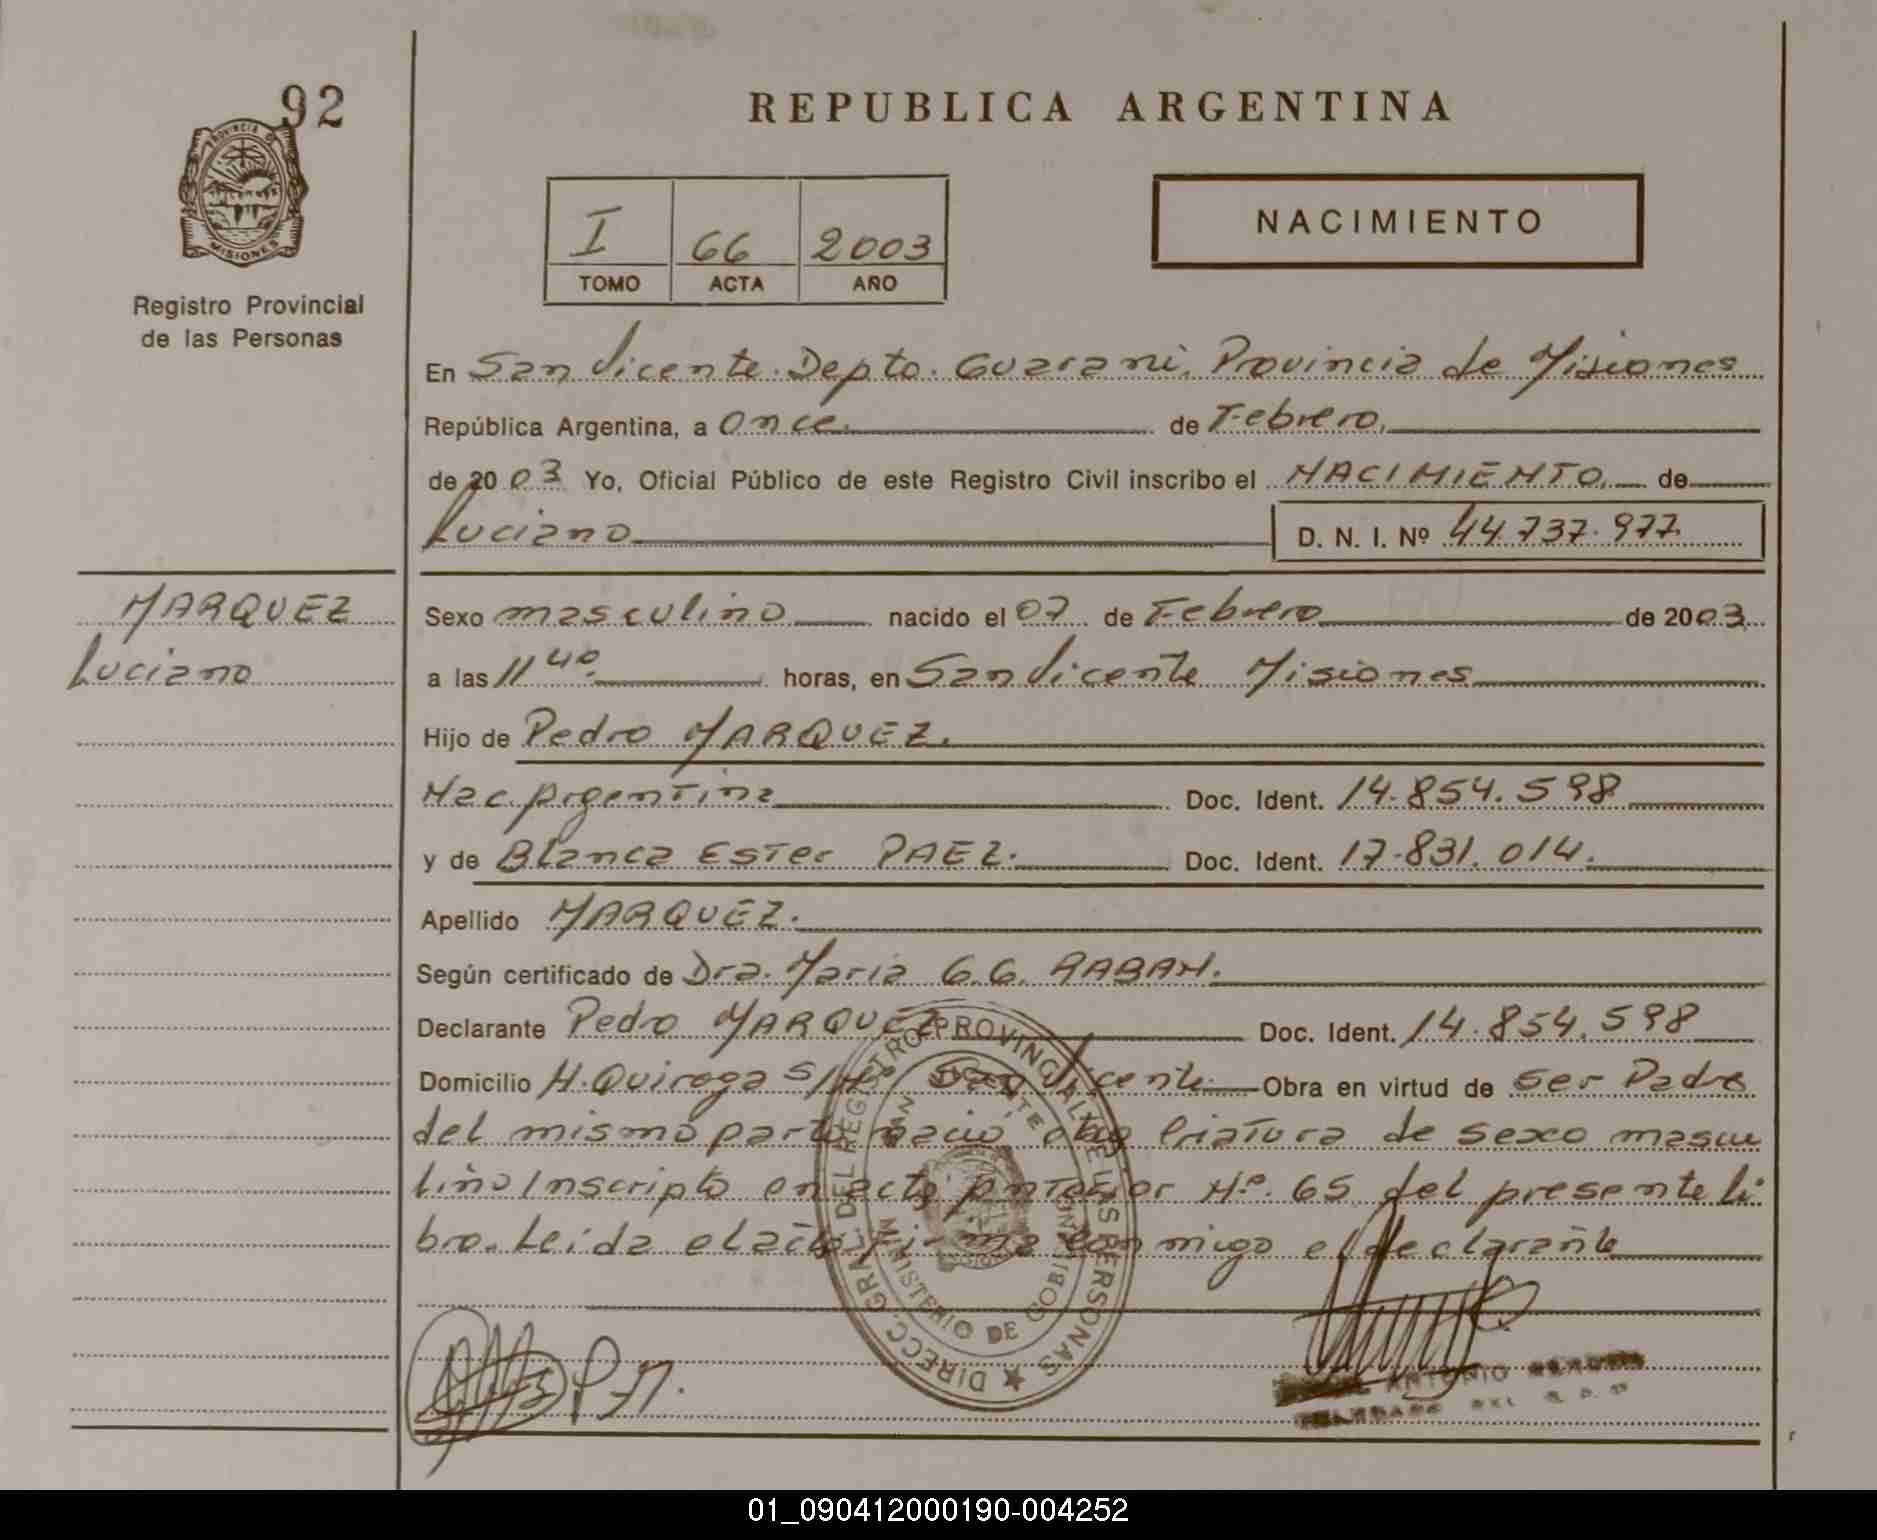 92
PROVINCIA DE
MISIONES
Registro Provincial
de las Personas
REPUBLICA ARGENTINA
I 66 2003
TOMO ACTA AÑO
NACIMIENTO
En San Vicente. Depto. Guarani. Provincia de Misiones
República Argentina, a Once. de Febrero.
de 2003 Yo, Oficial Público de este Registro Civil inscribo el NACIMIENTO. de
Luciano
D. N. I. Nº 44.737.977.
MARQUEZ
Luciano
Sexo masculino nacido el 07 de Febrero de 2003
a las 11 40. horas, en San Vicente Misiones
Hijo de Pedro MARQUEZ.
Nac. Argentina Doc. Ident. 14.854.598
y de Blanca Ester PAEZ. Doc. Ident. 17.831.014.
Apellido MARQUEZ.
Según certificado de Dra. Maria G.G.
Declarante Pedro MARQUEZ Doc. Ident. 14.854.598
Domicilio H. Quiroga S/Nº San Vicente. Obra en virtud de ser Padre
del mismo parto nació otra Criatura de sexo mascu
lino Inscripto en acto Anterior Nº. 65 del presente li
bro. Leida el acto firma conmigo el declarante
DIRECC. GRAL. DEL REGISTRO PROVINCIAL DE LAS PERSONAS
SAN VICENTE
MISIONES
MINISTERIO DE GOBIERNO
ANTONIO
01_090412000190-004252